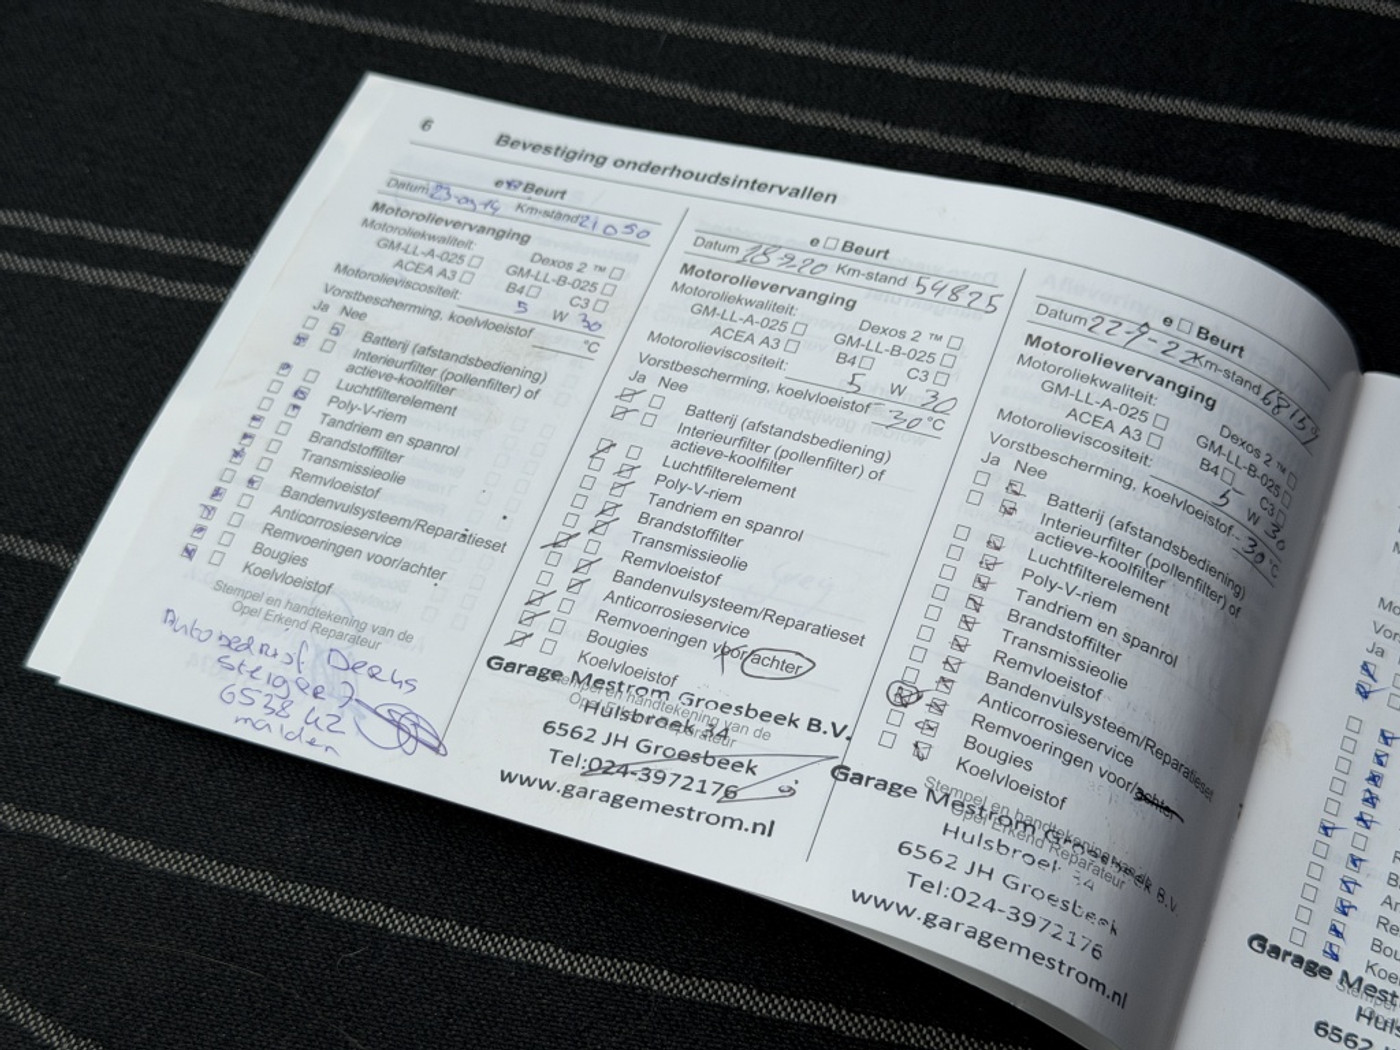 6
Bevestiging onderhoudsintervallen
e Beurt
Datum 23-09-14 Km-stand 21050
Motorolievervanging
Motoroliekwaliteit:
Dexos 2 ™
GM-LL-A-025
GM-LL-B-025
ACEA A3
B4
C3
Motorolieviscositeit:
5 W 30
Vorstbescherming, koelvloeistof °C
Ja Nee
Batterij (afstandsbediening)
Interieurfilter (pollenfilter) of
actieve-koolfilter
Luchtfilterelement
Poly-V-riem
Tandriem en spanrol
Brandstoffilter
Transmissieolie
Remvloeistof
Bandenvulsysteem/Reparatieset
Anticorrosieservice
Remvoeringen voor/achter
Bougies
Koelvloeistof
Stempel en handtekening van de
Opel Erkend Reparateur
Autobedrijf Derks
Steiger
6538
malden
e Beurt
Datum 18-9-20 Km-stand 54825
Motorolievervanging
Motoroliekwaliteit:
Dexos 2 ™
GM-LL-A-025
GM-LL-B-025
ACEA A3
B4
C3
Motorolieviscositeit:
5 W 30
Vorstbescherming, koelvloeistof -30 °C
Ja Nee
Batterij (afstandsbediening)
Interieurfilter (pollenfilter) of
actieve-koolfilter
Luchtfilterelement
Poly-V-riem
Tandriem en spanrol
Brandstoffilter
Transmissieolie
Remvloeistof
Bandenvulsysteem/Reparatieset
Anticorrosieservice
Remvoeringen voor/achter
Bougies
Koelvloeistof
Stempel en handtekening van de
Opel Erkend Reparateur
Garage Mestrom Groesbeek B.V.
Hulsbroek 34
6562 JH Groesbeek
Tel:024-3972176
www.garagemestrom.nl
e Beurt
Datum 22-9-22 Km-stand 68159
Motorolievervanging
Motoroliekwaliteit:
Dexos 2 ™
GM-LL-A-025
GM-LL-B-025
ACEA A3
B4
C3
Motorolieviscositeit:
5 W 30
Vorstbescherming, koelvloeistof -30 °C
Ja Nee
Batterij (afstandsbediening)
Interieurfilter (pollenfilter) of
actieve-koolfilter
Luchtfilterelement
Poly-V-riem
Tandriem en spanrol
Brandstoffilter
Transmissieolie
Remvloeistof
Bandenvulsysteem/Reparatieset
Anticorrosieservice
Remvoeringen voor/achter
Bougies
Koelvloeistof
Stempel en handtekening van de
Opel Erkend Reparateur
Garage Mestrom Groesbeek B.V.
Hulsbroek 34
6562 JH Groesbeek
Tel:024-3972176
www.garagemestrom.nl
Ja
Garage Mest
Huls
6562